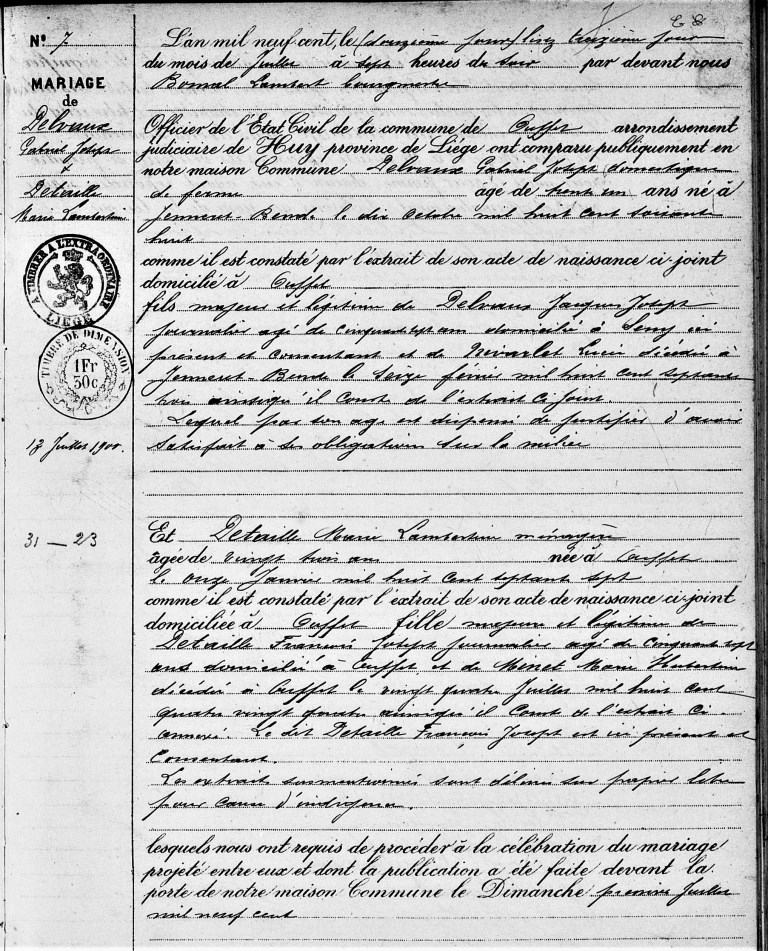 N° 7
MARIAGE
de
Delvaux
Gabriel Joseph
&
Detaille
Marie Lambertine
A TIMBRER A L'EXTRAORDINAIRE
LIEGE
TIMBRE DE DIMENSION
1 Fr
30c
13 Juillet 1900.
31 — 23
L'an mil neuf cent, le (douzième jour) lisez treizième jour
du mois de Juillet à sept heures du soir par devant nous
Bomal Lambert bourgmestre
Officier de l'Etat Civil de la commune de Ouffet arrondissement
judiciaire de Huy province de Liége ont comparu publiquement en
notre maison Commune Delvaux Gabriel Joseph domestique
de ferme agé de trente un ans né à
Jenneret Bende le dix Octobre mil huit cent soixante
huit
comme il est constaté par l'extrait de son acte de naissance ci-joint
domicilié à Ouffet
fils majeur et légitime de Delvaux Jacques Joseph
journalier agé de cinquante sept ans domicilié à Seny ici
présent et consentant et de Nivarlet Lucie décédée à
Jenneret Bende le Seize février mil huit cent septante
trois ainsi qu'il Conste de l'extrait Ci-Joint.
Lequel par son age est dispensé de justifier d'avoir
satisfait à ses obligations sur la milice
Et Detaille Marie Lambertine ménagère
agée de vingt trois ans née à Ouffet
le onze Janvier mil huit Cent septante sept
comme il est constaté par l'extrait de son acte de naissance ci-joint
domiciliée à Ouffet fille majeure et légitime de
Detaille François Joseph Journalier agé de Cinquante sept
ans domicilié à Ouffet et de Monet Marie
décédée à Ouffet le vingt quatre Juillet mil huit cent
quatre vingt quatre ainsi qu'il Conste de l'extrait Ci-
annexé. Le dit Detaille François Joseph est ici présent et
Consentant.
Les extraits susmentionnés sont délivrés sur papier libre
pour cause d'indigence.
lesquels nous ont requis de procéder à la célébration du mariage
projeté entre eux et dont la publication a été faite devant la
porte de notre maison Commune le Dimanche premier Juillet
mil neuf cent